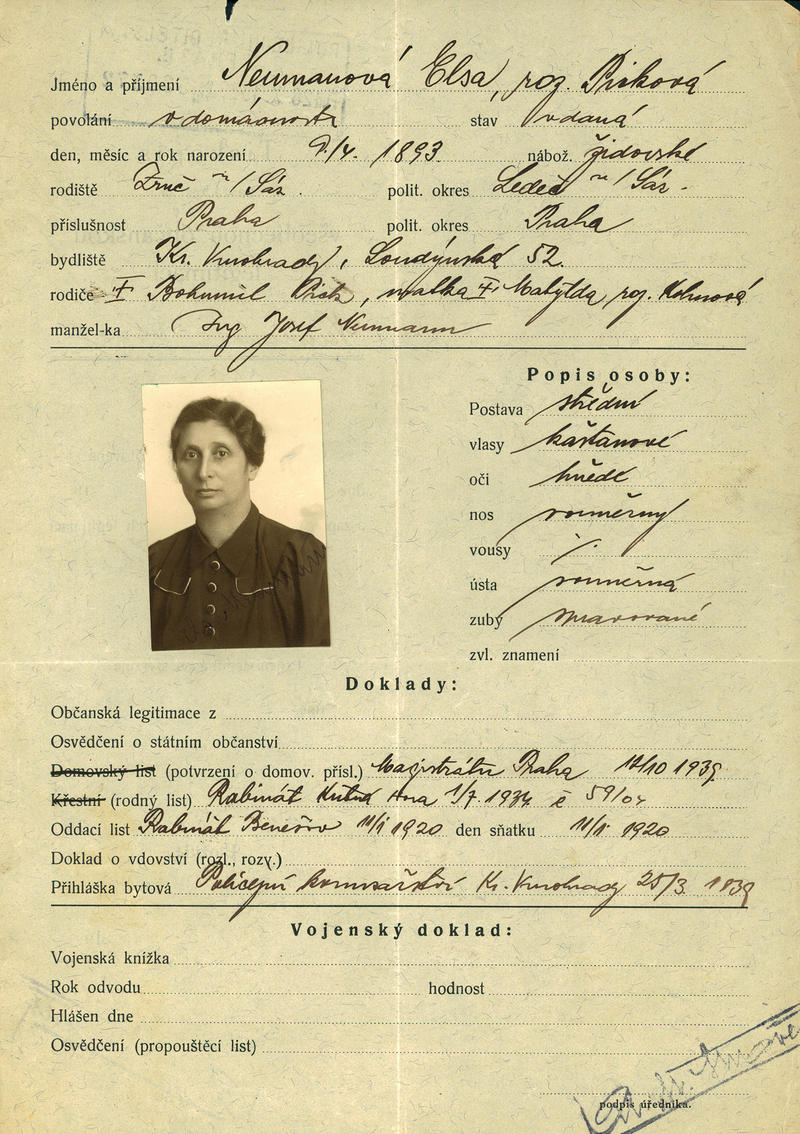 Jméno a příjmení Neumanová Elsa, roz. Picková
povolání v domácnosti stav vdaná
den, měsíc a rok narození 9./4. 1893. nábož. židovské
rodiště Zruč n/Sáz. polit. okres Ledeč n/Sáz.
příslušnost Praha polit. okres Praha
bydliště Kr. Vinohrady, Londýnská 52.
rodiče Bohumil Pick, matka Matylda, roz. Kohnová
manžel-ka Ing Josef Neumann
Popis osoby:
Postava střední
vlasy kaštanové
oči hnědé
nos souměrný
vousy ./.
ústa souměrná
zuby spravované
zvl. znamení
Doklady:
Občanská legitimace z
Osvědčení o státním občanství
Domovský list (potvrzení o domov. přísl.) Magistrátu Praha 1939
Křestní (rodný list) Rabinát Kutná Hora 1/7. 1934 č 59/04
Oddací list Rabinát Benešov 11/I 1920 den sňatku 11/I. 1920
Doklad o vdovství (rozl., rozv.)
Přihláška bytová Policejní komisařství Kr. Vinohrady 25/3 1939
Vojenský doklad:
Vojenská knížka
Rok odvodu hodnost
Hlášen dne
Osvědčení (propouštěcí list)
podpis úředníka.